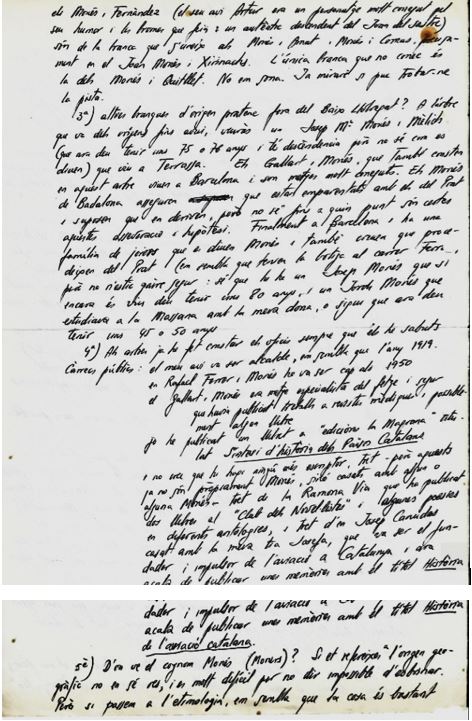 els Monés i Fernández (el seu avi Artur era un personatge molt conegut pel
seu humor i les bromes que feia: un autèntic descendent del Joan del sastre)
són de la branca que s'uneix als Monés i Amat, Monés i Comas,
ment en el Joan Monés i Xirinachs. L'única branca que no conec és
la dels Monés i Quitllet. No em sona. Ja miraré si puc trobar-ne
la pista.
3ª) altres branques d'origen pratenc fora del Baix Llobregat? A l'arbre
que va dels orígens fins aquí, veuràs un Josep Mª Monés i Mèlich
(que ara deu tenir uns 75 o 76 anys i té descendència però no sé com es
diuen) que viu a Terrassa. Els Gallart i Monés, que també consten
en aquest arbre viuen a Barcelona i son metges molt coneguts. Els Monés
de Badalona asseguren que estan emparentats amb els del Prat
i suposen que en deriven, però no sé fins a quin punt són certes
aquestes asseveració i hipòtesi. Finalment a Barcelona i ha una
família de joiers que es diuen Monés i també creuen que proce-
deixen del Prat (em sembla que tenen la botiga al carrer Ferran,
però no n'estic gaire segur: sé que hi ha un Josep Monés que si
encara és viu deu tenir uns 80 anys, i un Jordi Monés que
estudiava a la Massana amb la meva dona, o sigui que ara deu
tenir uns 45 o 50 anys
4ª) Als arbres ja he fet constar els oficis sempre que els he sabuts
Càrrecs públics: el meu avi va ser alcalde, em sembla que l'any 1919.
en Rafael Ferrer i Monés ho va ser cap als 1950
el Gallart i Monés era metge especialista del fetge i segur
que havia publicat treballs a revistes mèdiques i possible-
ment algun llibre
jo he publicat un llibret a "edicions la Magrana" titu-
lat Síntesi d'història dels Països Catalans
i no crec que hi hagi ningú més escriptor, tret - però aquests
ja no són pròpiament Monés, sinó casats amb algun o
alguna Monés - tret de la Ramona Via que ha publicat
dos llibres al "Club dels Novel·listes" i algunes poesies
en diferents antologies, i tret d'en Josep Canudas
casat amb la meva tia Josefa, que va ser el fun-
dador i impulsor de l'aviació a Catalunya i ara
acaba de publicar unes memòries amb el títol Història
dador i impulsor de l'aviació a
acaba de publicar unes memòries amb el títol Història
de l'aviació catalana.
5è) D'on ve el cognom Monés (Moners)? Si et refereixes a l'origen geo-
gràfic no en sé res, i es molt difícil per no dir impossible d'esbrinar.
Però si passem a l'etimologia, em sembla que la cosa és bastant